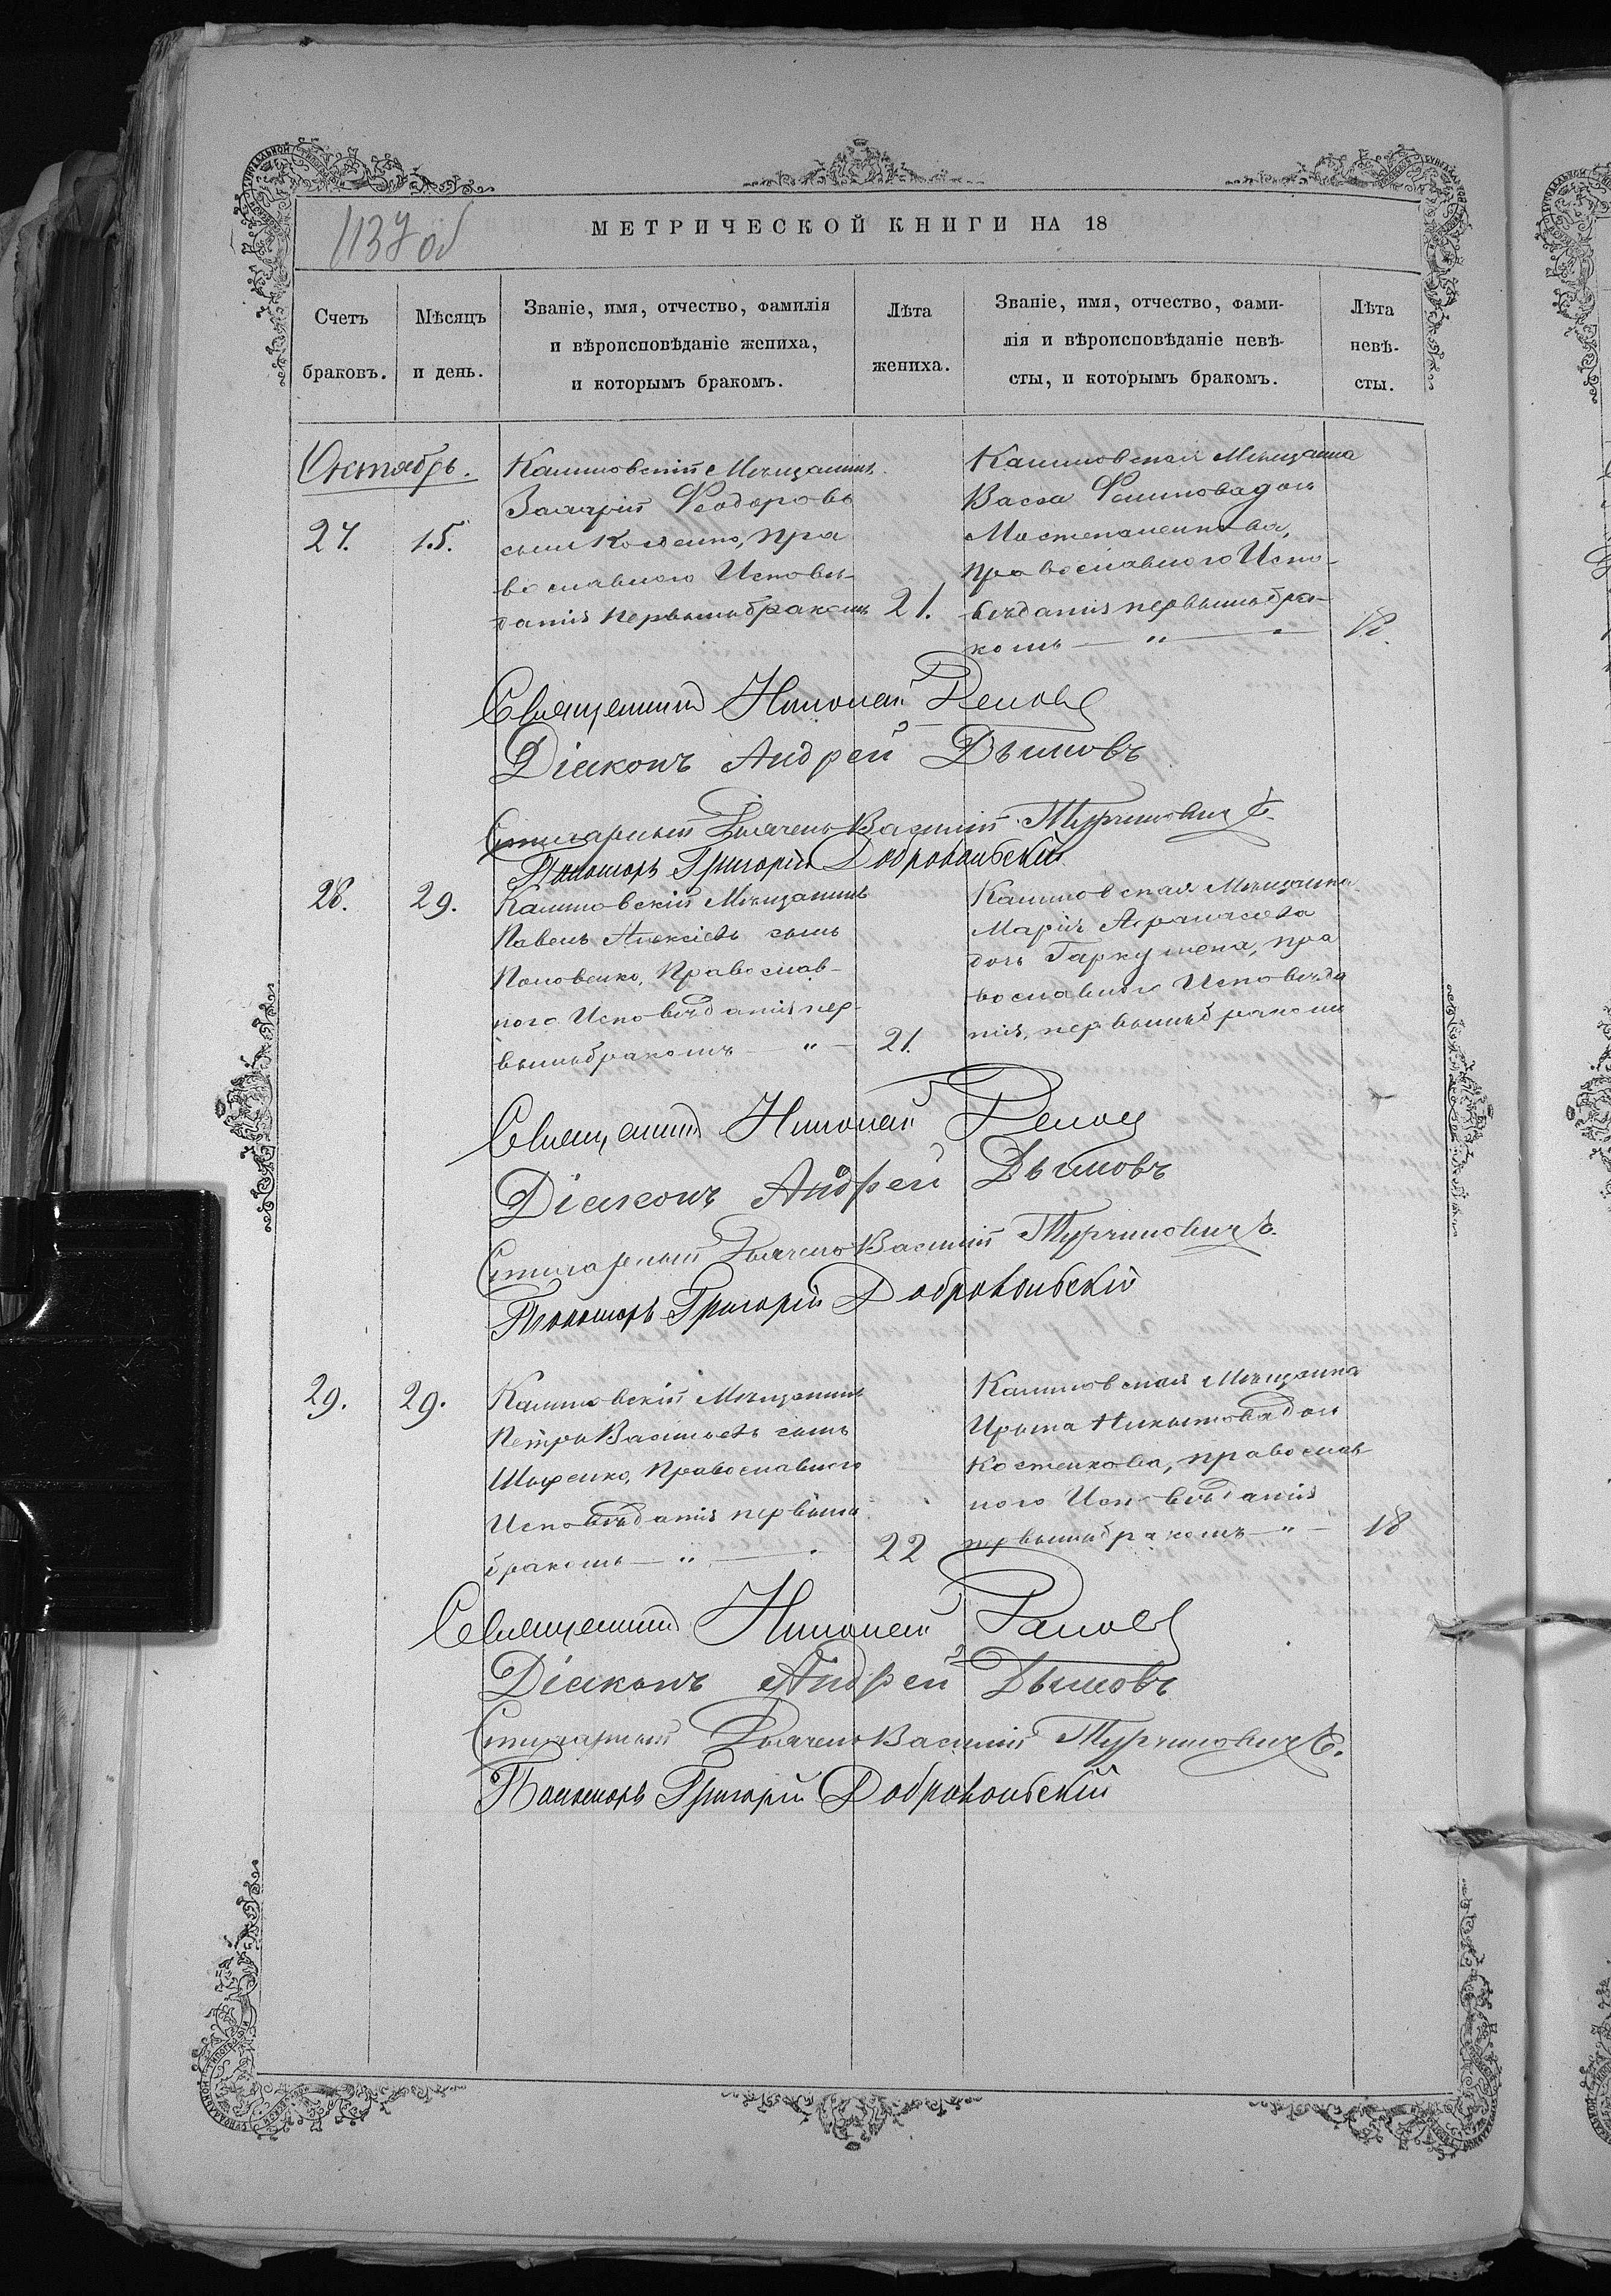 1137 об
МЕТРИЧЕСКОЙ КНИГИ НА 18
Счетъ браковъ.
Мѣсяцъ и день.
Званіе, имя, отчество, фамилія
и вѣроисповѣданіе жениха,
и которымъ бракомъ.
Лѣта жениха.
Званіе, имя, отчество, фами-
лія и вѣроисповѣданіе невѣ-
сты, и которымъ бракомъ.
Лѣта невѣ-
сты.
Октябрь.
27.
15.
Мѣщанинъ
Захарій Феодоровъ
сынъ пра
вославного Исповѣ-
данія первымъ бракомъ
21.
Мѣщанка
Васса дочь
православного Испо-
вѣданія первымъ бра-
комъ — „ —
Священникъ Николай
Діаконъ Андрей Дымовъ
Стихарный Дьячекъ Василій Турчиновичъ
Пономарь Григорій Добровольскій
28.
29.
Мѣщанинъ
Павелъ Алексіевъ сынъ
Поповенко, Православ-
ного Исповѣданія пер-
вымъ бракомъ — „ —
21.
Мѣщанка
Марія Афанасіева
дочь пра
вославного Исповѣда
нія, первымъ бракомъ
Священникъ Николай
Діаконъ Андрей Дымовъ
Стихарный Дьячекъ Василій Турчиновичъ
Пономарь Григорій Добровольскій
29.
29.
Мѣщанинъ
Петръ Васильевъ сынъ
Православного
Исповѣданія первымъ
бракомъ — „ —
22
Мѣщанка
Ирына Никитова дочь
Костенкова, православ
ного Исповѣданія
первымъ бракомъ — „ —
18
Священникъ Николай
Діаконъ Андрей Дымовъ
Стихарный Дьячекъ Василій Турчиновичъ
Пономарь Григорій Добровольскій